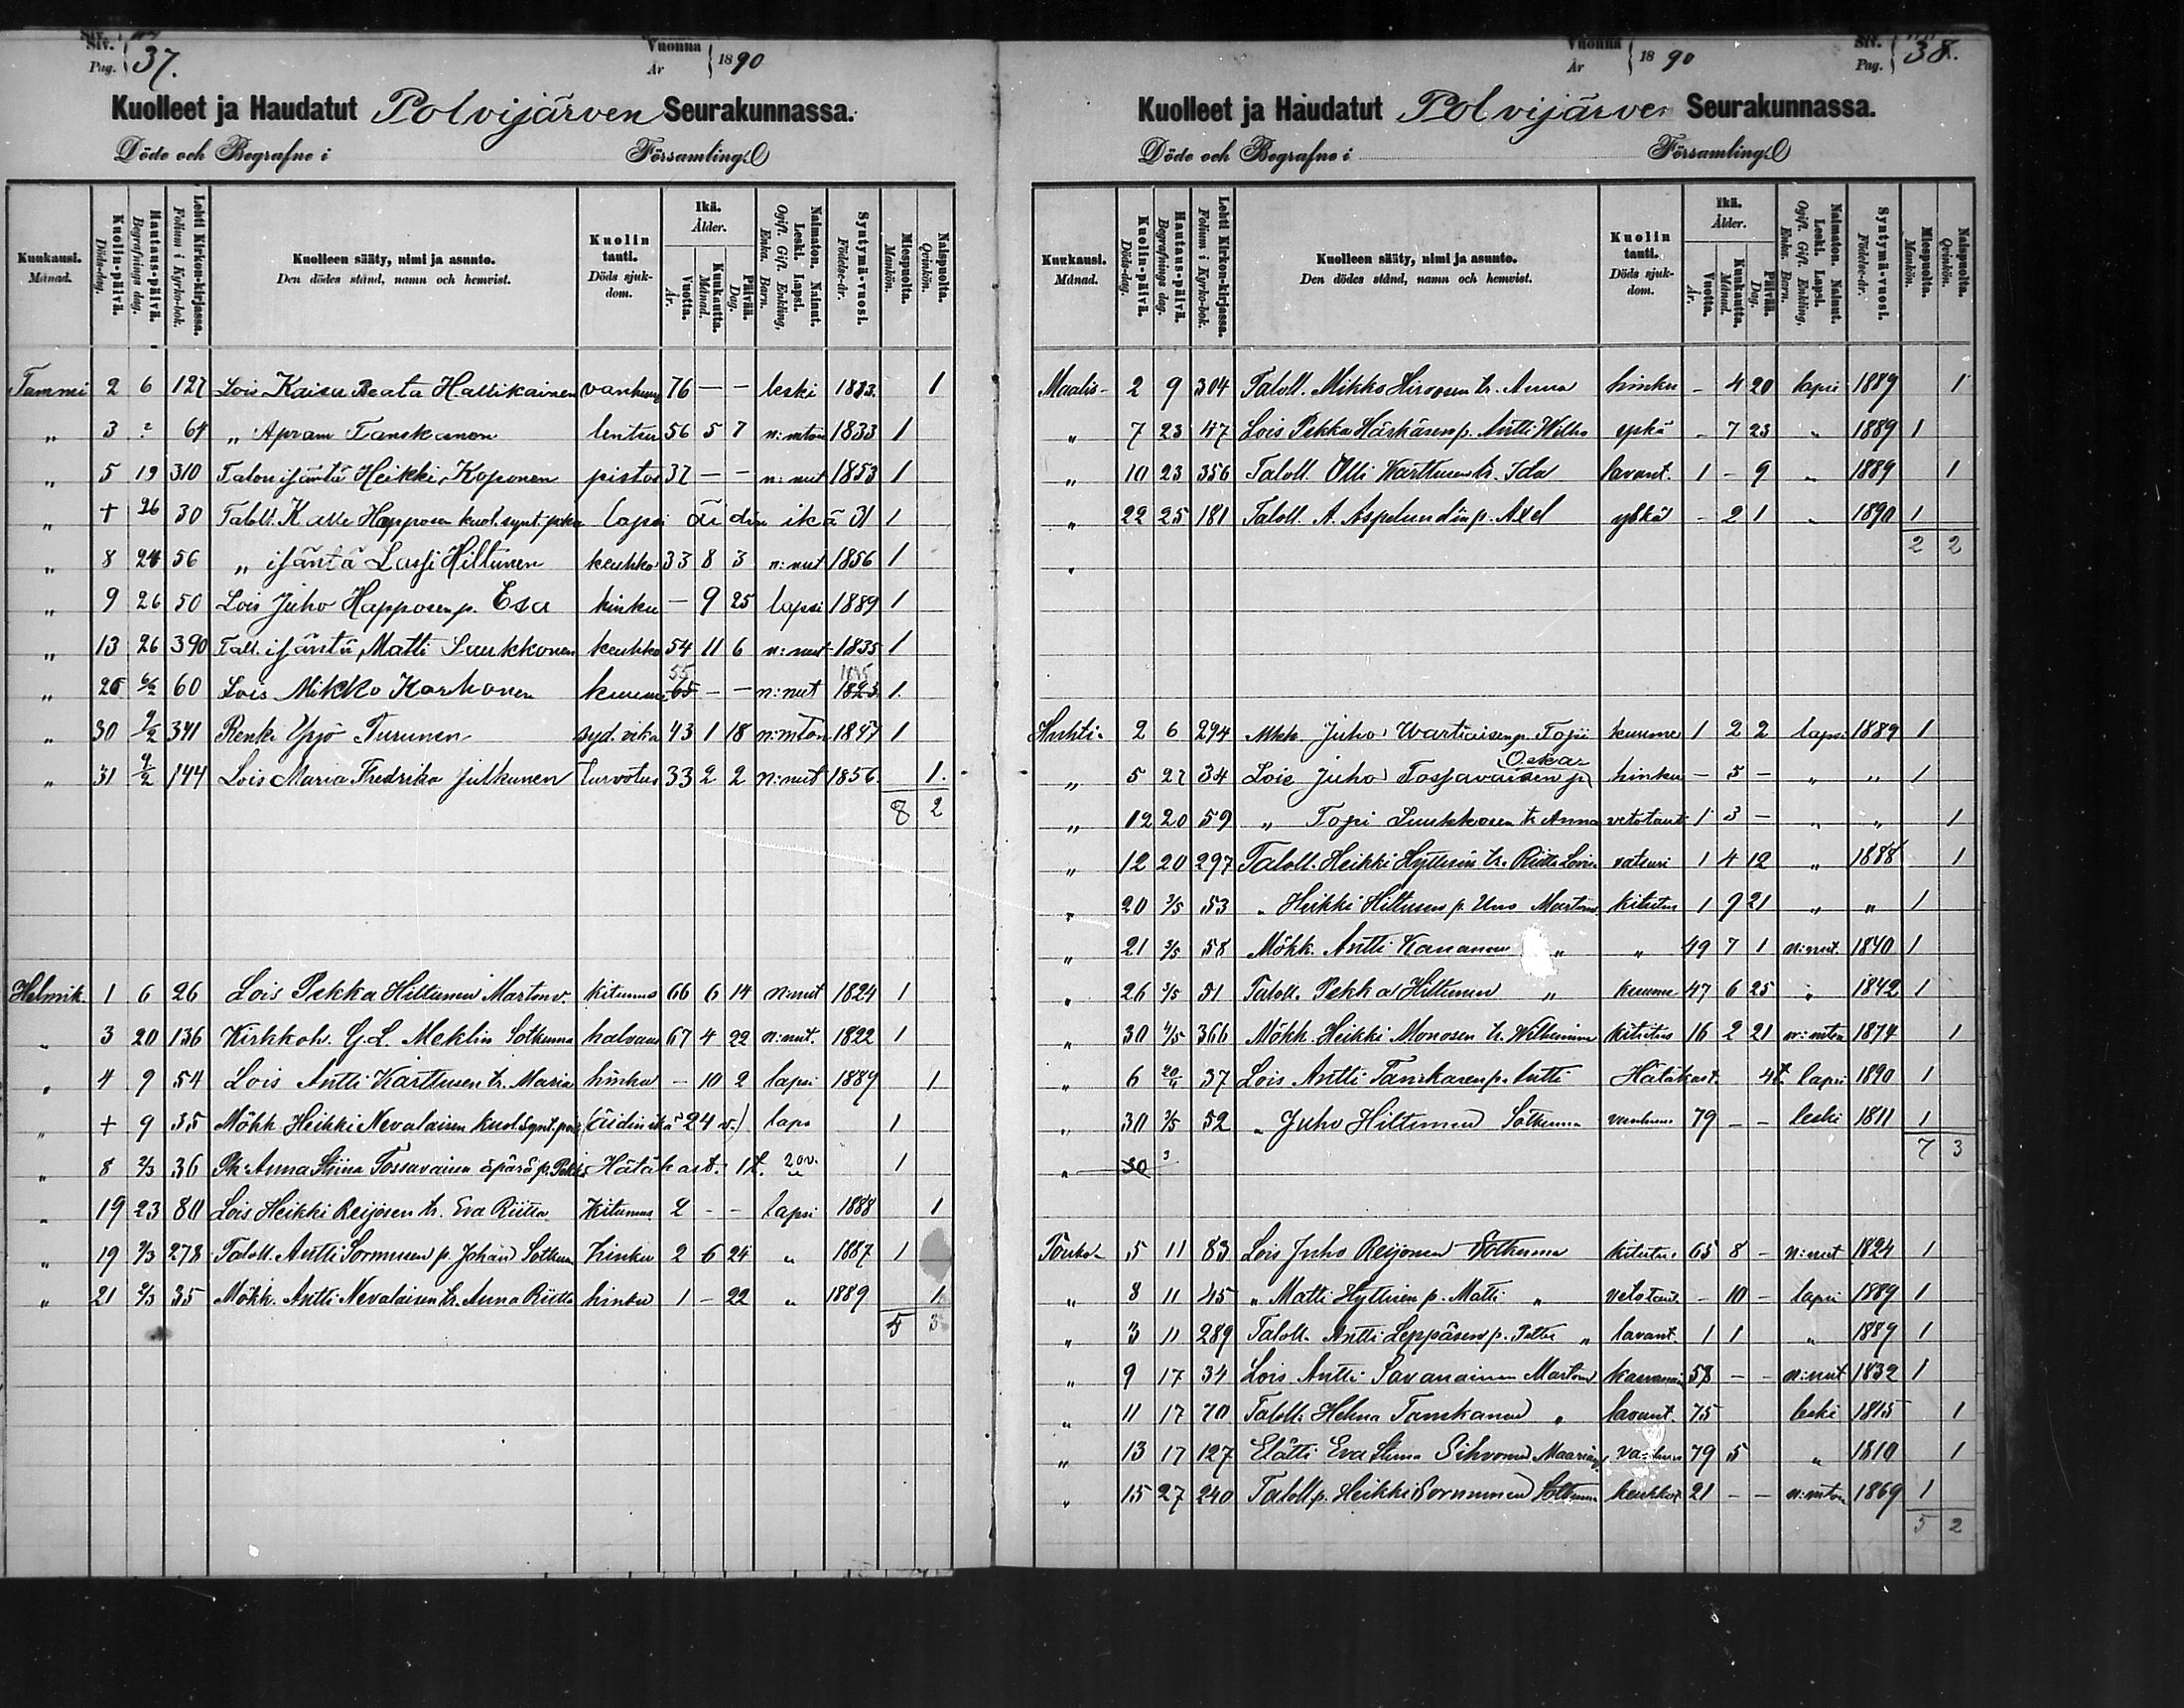 Siv. Pag. 37.
Vuonna År 1890
Kuolleet ja Haudatut Polvijärven Seurakunnassa.
Döde och Begrafne i Församling.
Kuukausi. Månad.
Kuolin-päivä. Döds-dag.
Hautaus-päivä. Begrafnings dag.
Lehti Kirkon-kirjassa. Folium i Kyrko-bok.
Kuolleen sääty, nimi ja asunto. Den dödes stånd, namn och hemvist.
Kuolin tauti. Döds sjukdom.
Ikä. Ålder.
Vuotta. År.
Kuukautta. Månad.
Päivää. Dag.
Naimaton. Nainut. Leski. Lapsi. Ogift. Gift. Enkling, Enka. Barn.
Syntymä-vuosi. Födelse-år.
Miespuolta. Mankön.
Naispuolta. Qvinkön.
Tammi 2 6 127 Lois Kaisa Beata Hallikainen vanhuus 76 — — leski 1813. 1
„ 3 ? 64 „ Apram Tanskanen lentsu 56 5 7 n:mton 1833 1
„ 5 19 310 Talon isäntä Heikki Koponen pistos 37 — — n:nut 1853 1
„ + 26 30 Taloll. Kalle Happosen kuol. synt. poika lapsi äidin ikä 31 1
„ 8 24 56 „ isäntä Lassi Hiltunen keuhko 33 8 3 n:nut 1856 1
„ 9 26 50 Lois Juho Happosen p. Esa hinku — 9 25 lapsi 1889 1
„ 13 26 390 Tall. isäntä Matti Laukkonen keuhko 54 11 6 n:nut 1835 1
„ 25 6/2 60 Lois Mikko Karhonen kuume 65 55 — — n:nut 1823 1835 1.
„ 30 9/2 341 Renki Yrjö Turunen syd. vika 43 1 18 n:mton 1847 1
„ 31 9/2 144 Lois Maria Fredrika Julkunen turvotus 33 2 2 n:nut 1856. 1.
8 2
Helmik. 1 6 26 Lois Pekka Hiltunen Martonv. kitumus 66 6 14 n:nut 1824 1
„ 3 20 136 Kirkkoh. G. L. Meklin Sotkuma halvaus 67 4 22 n:nut. 1822 1
„ 4 9 54 Lois Antti Karttusen tr. Maria hinku — 10 2 lapsi 1889 1
„ + 9 35 Mökk. Heikki Nevalaisen kuol. synt. poika (äidin ikä 24 v.) laps 1
„ 8 2/3 36 Pk. Anna Stiina Tossavaisen äpärä p. Pekka Hätäkast. 1 t. 1
„ 19 23 80 Lois Heikki Reijosen tr. Eva Riitta kitumus 2 - - lapsi 1888 1
„ 19 2/3 278 Taloll. Antti Sormusen p. Johan Sotkum hinku 2 6 24 „ 1887 1
„ 21 2/3 35 Mökk. Antti Nevalaisen tr. Anna Riitta hinku 1 - 22 „ 1889 1
5 3
Vuonna År 1890
Siv. Pag. 38.
Kuolleet ja Haudatut Polvijärven Seurakunnassa.
Döde och Begrafne i Församling.
Kuukausi. Månad.
Kuolin-päivä. Döds-dag.
Hautaus-päivä. Begrafnings dag.
Lehti Kirkon-kirjassa. Folium i Kyrko-bok.
Kuolleen sääty, nimi ja asunto. Den dödes stånd, namn och hemvist.
Kuolin tauti. Döds sjukdom.
Ikä. Ålder.
Vuotta. År.
Kuukautta. Månad.
Päivää. Dag.
Naimaton. Nainut. Leski. Lapsi. Ogift. Gift. Enkling, Enka. Barn.
Syntymä-vuosi. Födelse-år.
Miespuolta. Mankön.
Naispuolta. Qvinkön.
Maalis- 2 9 304 Taloll. Mikko Hirvosen tr. Anna hinku - 4 20 lapsi 1889 1
„ 7 23 47 Lois Pekka Härkäsen p. Antti Wilho yskä - 7 23 „ 1889 1
„ 10 23 356 Taloll. Olli Karttusen tr. Ida lavant. 1 - 9 „ 1889 1
„ 22 25 181 Taloll. A. Aspelundin p. Axel yskä - 2 1 „ 1890 1
2 2
Huhti- 2 6 294 Mkk. Juho Wartiaisen p. Topi kuume 1 2 2 lapsi 1889 1
„ 5 27 34 Lois Juho Tossavaisen p. Oskar hinku - 5 - „ „ 1
„ 12 20 59 „ Topi Luukkosen tr. Anna vetotaut 1 3 - „ „ 1
„ 12 20 297 Taloll. Heikki Hyttisen tr. Riitta Lovisa vatsuri 1 4 12 „ 1888 1
„ 20 3/5 53 „ Heikki Hiltusen p. Uno Martonv. kitutus 1 9 21 „ „ 1
„ 21 3/5 58 Mökk. Antti Kananen „ „ 49 7 1 n:nut. 1840 1
„ 26 3/5 51 Taloll. Pekka Hiltunen „ kuume 47 6 25 „ 1842 1
„ 30 4/5 366 Mökk. Heikki Monosen tr. Wilhemina kitutus 16 2 21 n:mton 1874 1
„ 6 20/4 37 Lois Antti Tanskasen p. Antti Hätäkast. 4t. lapsi 1890 1
„ 30 3/5 52 „ Juho Hiltunen Sotkuma vanhuus 79 - - leski 1811 1
7 3
„ 30 3
Touko- 5 11 83 Lois Juho Reijonen Sotkuma kitutus 65 8 - n:nut 1824 1
„ 8 11 45 „ Matti Hyttisen p. Matti „ vetotaut. - 10 - lapsi 1889 1
„ 3 11 289 Taloll. Antti Leppäsen p. Petter „ lavant. 1 1 „ 1889 1
„ 9 17 34 Lois Antti Savanainen Martonv 58 - - n:nut 1832 1
„ 11 17 70 Taloll. Helena Tanskanen „ lavant. 75 leski 1815 1
„ 13 17 127 Elätti Eva Stina Sihvonen vanhuus 79 5 „ 1810 1
„ 15 27 240 Taloll. p. Heikki Sormunen Sotkuma keuhko 21 - - n:mton 1869 1
5 2